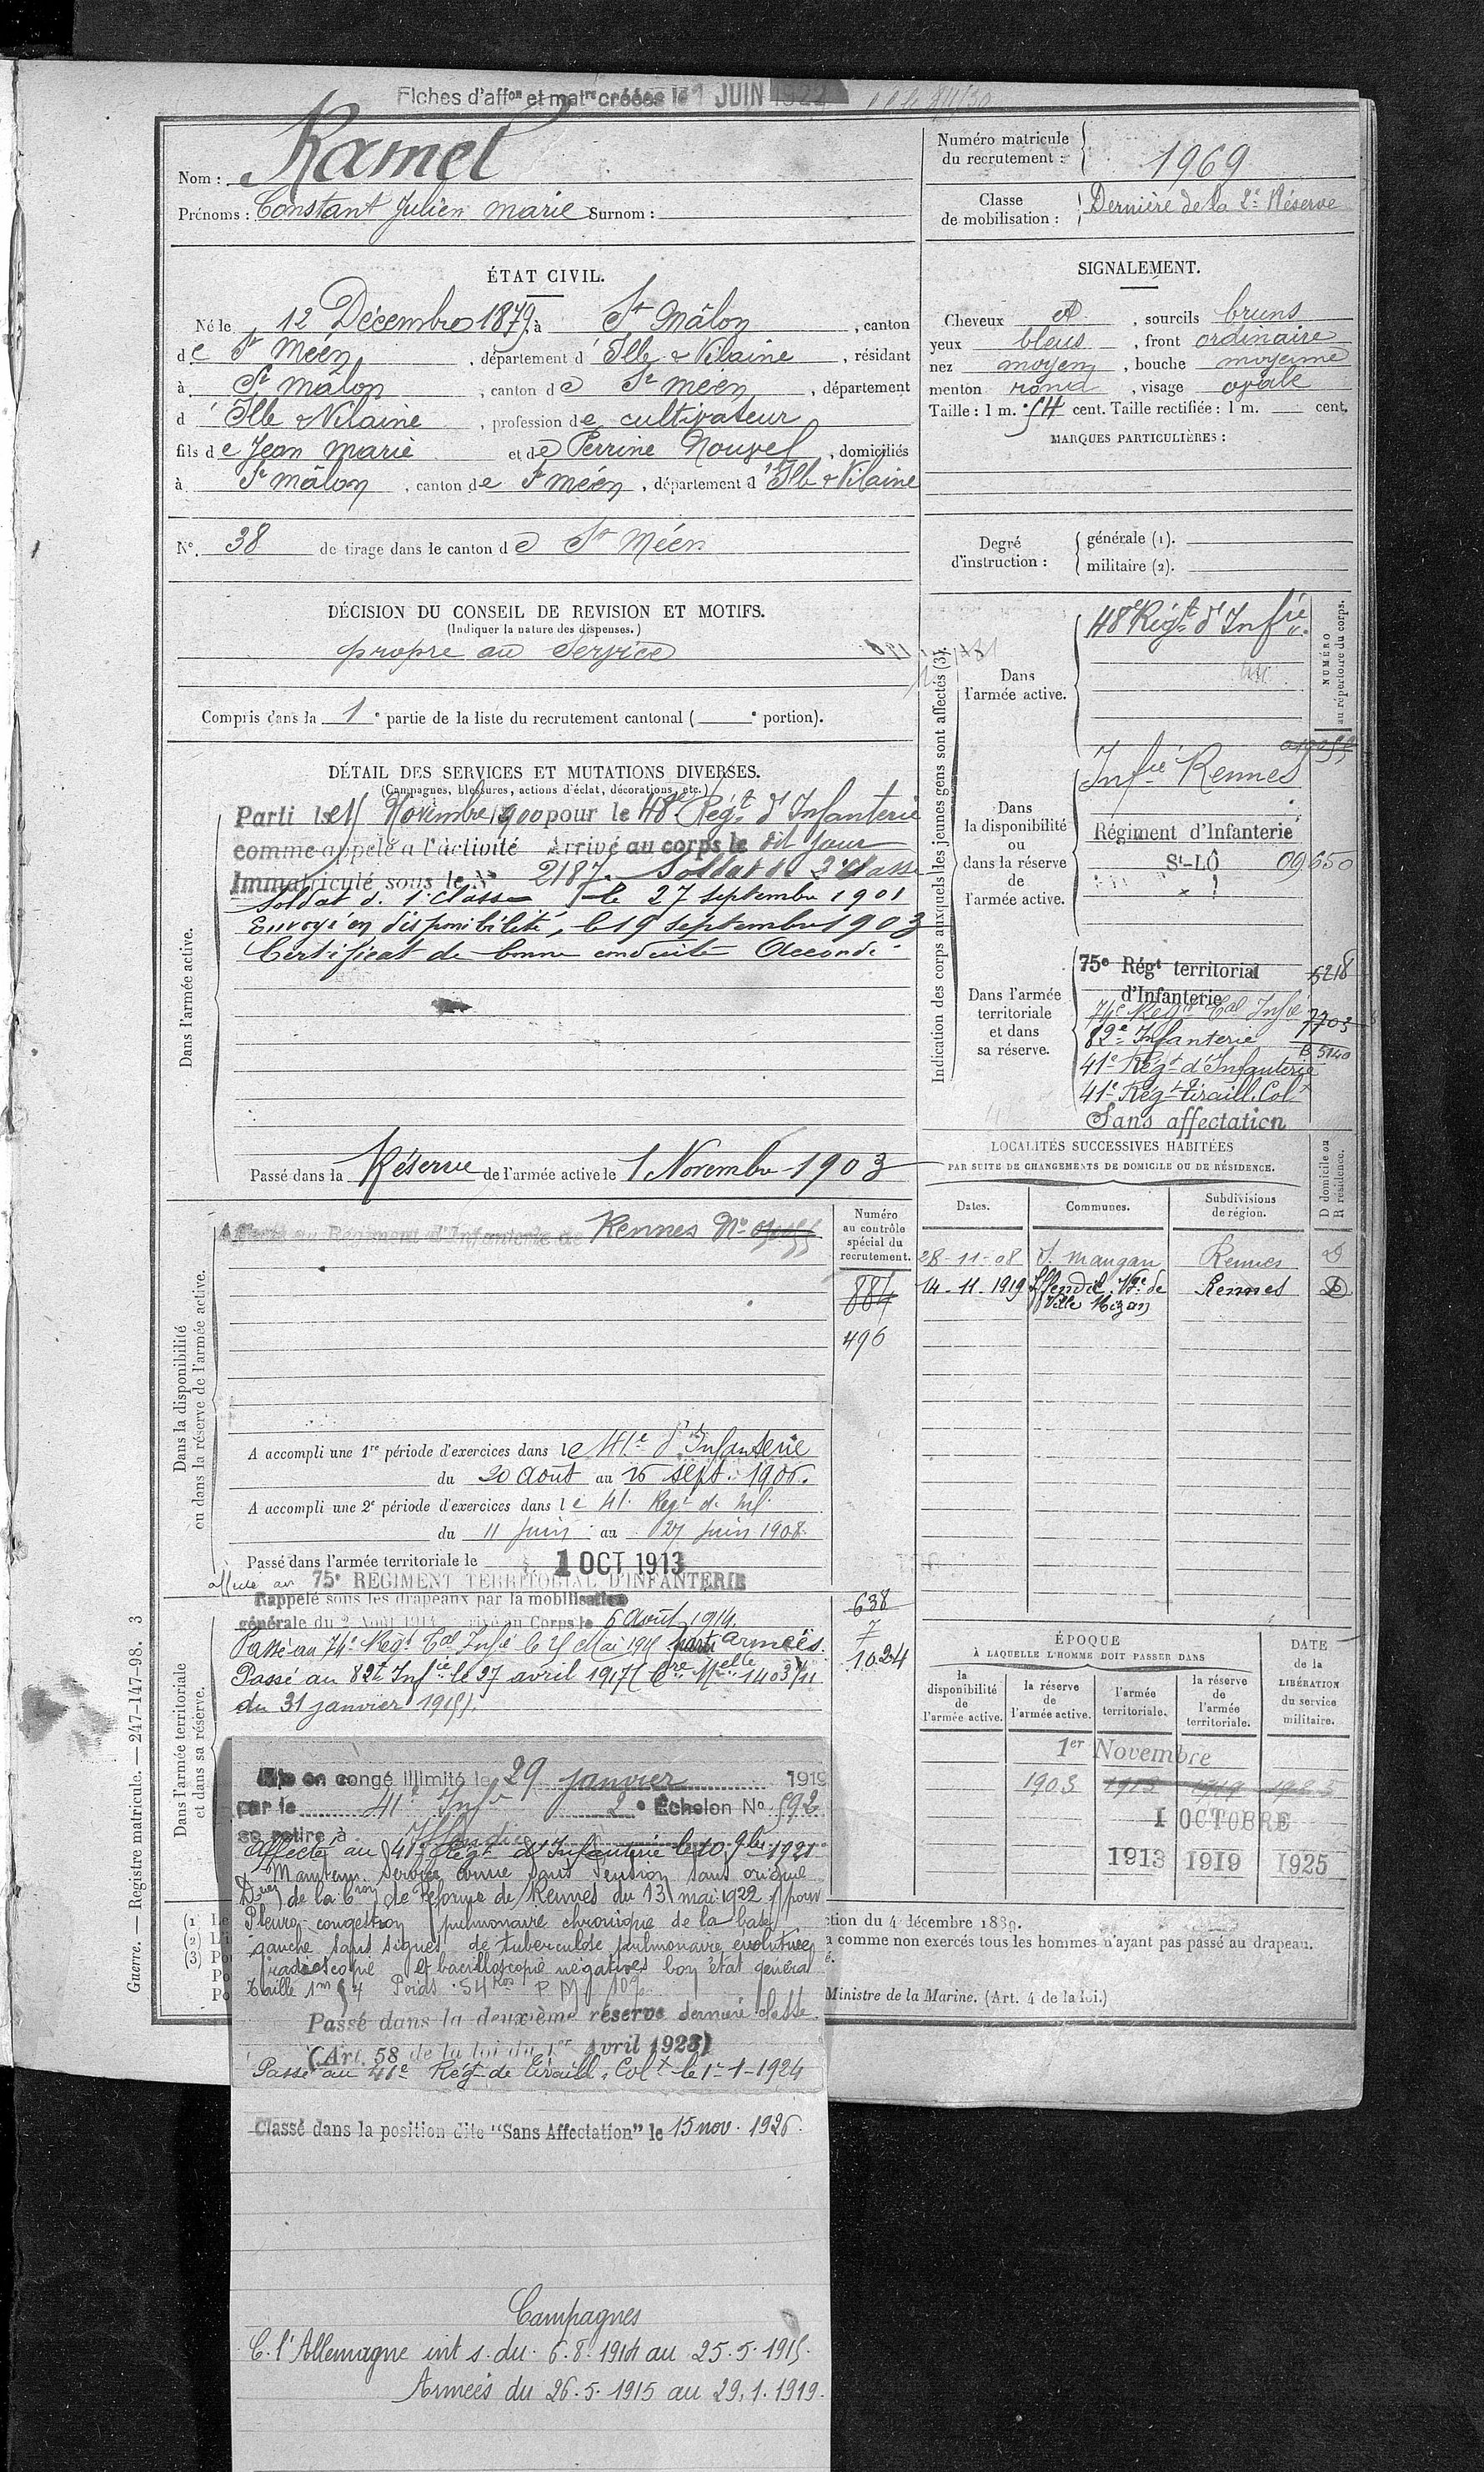 Fiches d'affon et matre créées le 1 JUIN 1922
Nom : Ramel
Prénoms : Constant Julien Marie Surnom :
Numéro matricule du recrutement : 1969
Classe de mobilisation : Dernière de la 2e Réserve
ÉTAT CIVIL.
Né le 12 Décembre 1879, à St Mâlon, canton
de St Méen, département d'Ille & Vilaine, résidant
à St Mâlon, canton de St Méen, département
d'Ille & Vilaine, profession de cultivateur
fils de Jean Marie et de Perrine Nouvel, domiciliés
à St Mâlon, canton de St Méen, département d'Ille & Vilaine
N° 38 de tirage dans le canton de St Méen
SIGNALEMENT.
Cheveux et, sourcils bruns
yeux bleus, front ordinaire
nez moyen, bouche moyenne
menton rond, visage ovale
Taille : 1 m. 54 cent. Taille rectifiée : 1 m. cent.
MARQUES PARTICULIÈRES :
Degré d'instruction : générale (1).
militaire (2).
DÉCISION DU CONSEIL DE REVISION ET MOTIFS.
(Indiquer la nature des dispenses.)
propre au service
Compris dans la 1e partie de la liste du recrutement cantonal ( e portion).
DÉTAIL DES SERVICES ET MUTATIONS DIVERSES.
(Campagnes, blessures, actions d'éclat, décorations, etc.)
Dans l'armée active.
Parti le 15 Novembre 1900 pour le 48e Régt d'Infanterie
comme appelé à l'activité Arrivé au corps le dit jour
Immatriculé sous le N° 2187. Soldat de 2e classe
Soldat de 1e classe le 27 septembre 1901
Envoyé en disponibilité, le 19 septembre 1903
Certificat de bonne conduite Accordé
Passé dans la Réserve de l'armée active le 1 Novembre 1903
Indication des corps auxquels les jeunes gens sont affectés (3).
NUMÉRO au répertoire du corps.
Dans l'armée active.
48e Régt d'Infie
Dans la disponibilité ou dans la réserve de l'armée active.
Infie Rennes
Régiment d'Infanterie
St-LÔ 09650
Dans l'armée territoriale et dans sa réserve.
75e Régt territorial d'Infanterie 5218
74e Régt Tal Infie 7703
82e Infanterie B 5140
41e Régt d'Infanterie
41e Régt tiraill. Colx
Sans affectation
LOCALITÉS SUCCESSIVES HABITÉES
PAR SUITE DE CHANGEMENTS DE DOMICILE OU DE RÉSIDENCE.
Dates. Communes. Subdivisions de région. D domicile ou R résidence.
28-11-08 St Maugan Rennes D
14-11-1919 Iffendic. Vge de Ville Mizan Rennes D
Dans la disponibilité ou dans la réserve de l'armée active.
Affecté au Régiment d'Infanterie de Rennes N°
Numéro au contrôle spécial du recrutement.
884
496
A accompli une 1re période d'exercices dans le 41e d'Infanterie
du 20 août au 16 sept. 1906.
A accompli une 2e période d'exercices dans le 41 Regt de Inf.
du 11 juin au 27 juin 1908.
Passé dans l'armée territoriale le 1 OCT 1913
affecté au 75e RÉGIMENT TERRITORIAL D'INFANTERIE
Dans l'armée territoriale et dans sa réserve.
Rappelé sous les drapeaux par la mobilisation
générale du 2 Août 1914 arrivé au Corps le 6 août 1914.
Passé au 74e Régt Tal Infie le 25 Mai 1915 parti armées.
Passé au 82e Infie le 27 avril 1917 (Cre Melle 1403/11
du 31 janvier 1915).
638
1024
Mis en congé illimité le 29 janvier 1919
par le 41e Infie 2e Échelon N° 592
se retire à Iffendic
Affecté au 41e Régt d'Infanterie le 10 9bre 1921
Maintenu service armé sans pension sans origine
Don de la Con de Réforme de Rennes du 13 mai 1922 pour
Pleuro-congestion pulmonaire chronique de la base
gauche sans signes de tuberculose pulmonaire evolutive
radioscopie et bacilloscopie negatives bon état général
Taille 1m54 Poids 54 Kos P M
Passé dans la deuxième réserve dernière classe.
(Art. 58 de la loi du 1er Avril 1923)
Passé au 41e Régt de tiraill. Colx le 1-1-1924
Classé dans la position dite "Sans Affectation" le 15 nov. 1926.
Campagnes
C. l'Allemagne int s. du 6.8.1914 au 25.5.1915.
Armées du 26.5.1915 au 29.1.1919.
ÉPOQUE
À LAQUELLE L'HOMME DOIT PASSER DANS
la disponibilité de l'armée active.
la réserve de l'armée active.
l'armée territoriale.
la réserve de l'armée territoriale.
DATE de la LIBÉRATION du service militaire.
1er Novembre
1903 1913 1919 1925
1 OCTOBRE
1913 1919 1925
(1) Le
(2) L
(3) Po
Po
Po
ction du 4 décembre 1889.
a comme non exercés tous les hommes n'ayant pas passé au drapeau.
é.
Ministre de la Marine. (Art. 4 de la loi.)
Guerre. — Registre matricule. — 247-147-98. 3